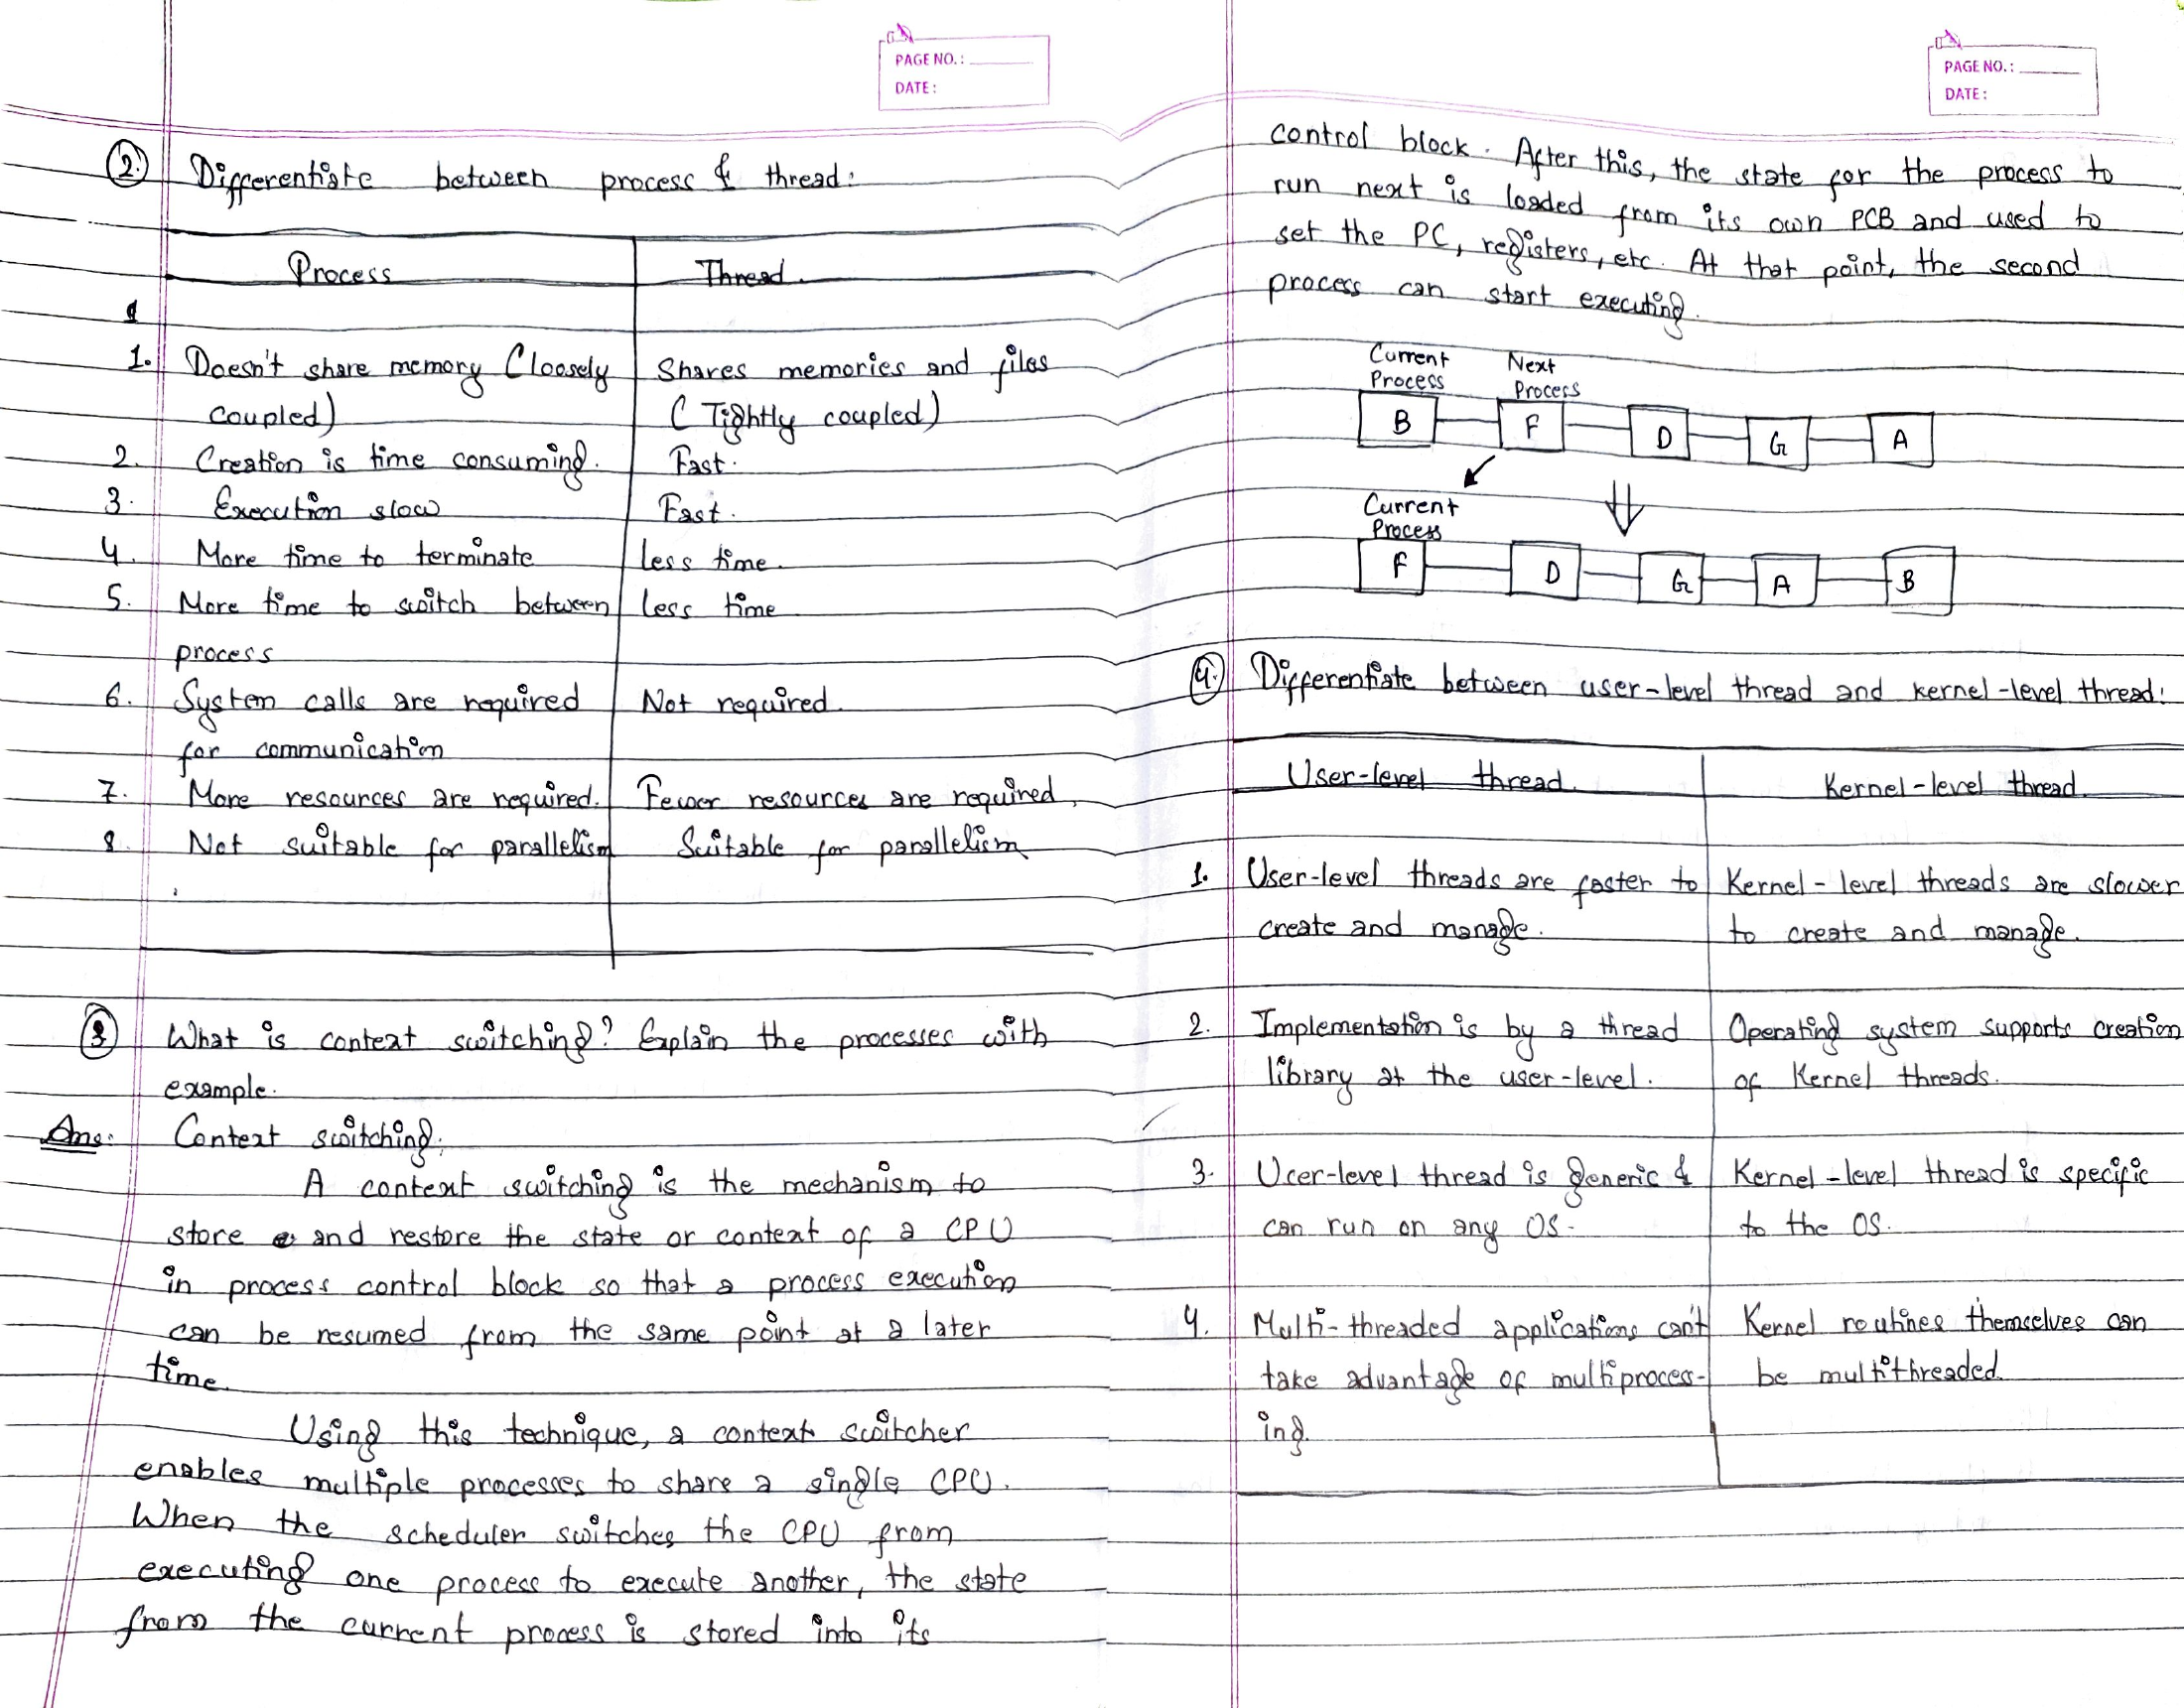 PAGE NO.:
DATE:
2. Differentiate between process & thread:
Process Thread.
1. Doesn't share memory (loosely Shares memories and files
coupled) (Tightly coupled)
2. Creation is time consuming. Fast.
3. Execution slow Fast.
4. More time to terminate less time.
5. More time to switch between less time
process
6. System calls are required Not required.
for communication
7. More resources are required. Fewer resources are required.
8. Not suitable for parallelism Suitable for parallelism
3. What is context switching? Explain the processes with
example.
Ans: Context switching:
A context switching is the mechanism to
store and restore the state or context of a CPU
in process control block so that a process execution
can be resumed from the same point at a later
time.
Using this technique, a context switcher
enables multiple processes to share a single CPU.
When the scheduler switches the CPU from
executing one process to execute another, the state
from the current process is stored into its
PAGE NO.:
DATE:
control block. After this, the state for the process to
run next is loaded from its own PCB and used to
set the PC, registers, etc. At that point, the second
process can start executing.
Current Next
Process Process
B F D G A
Current
Process
F D G A B
4. Differentiate between user-level thread and kernel-level thread:
User-level thread. Kernel-level thread.
1. User-level threads are faster to Kernel-level threads are slower
create and manage. to create and manage.
2. Implementation is by a thread Operating system supports creation
library at the user-level. of Kernel threads.
3. User-level thread is generic & Kernel-level thread is specific
can run on any OS. to the OS.
4. Multi-threaded applications can't Kernel routines themselves can
take advantage of multiprocess- be multithreaded.
ing.